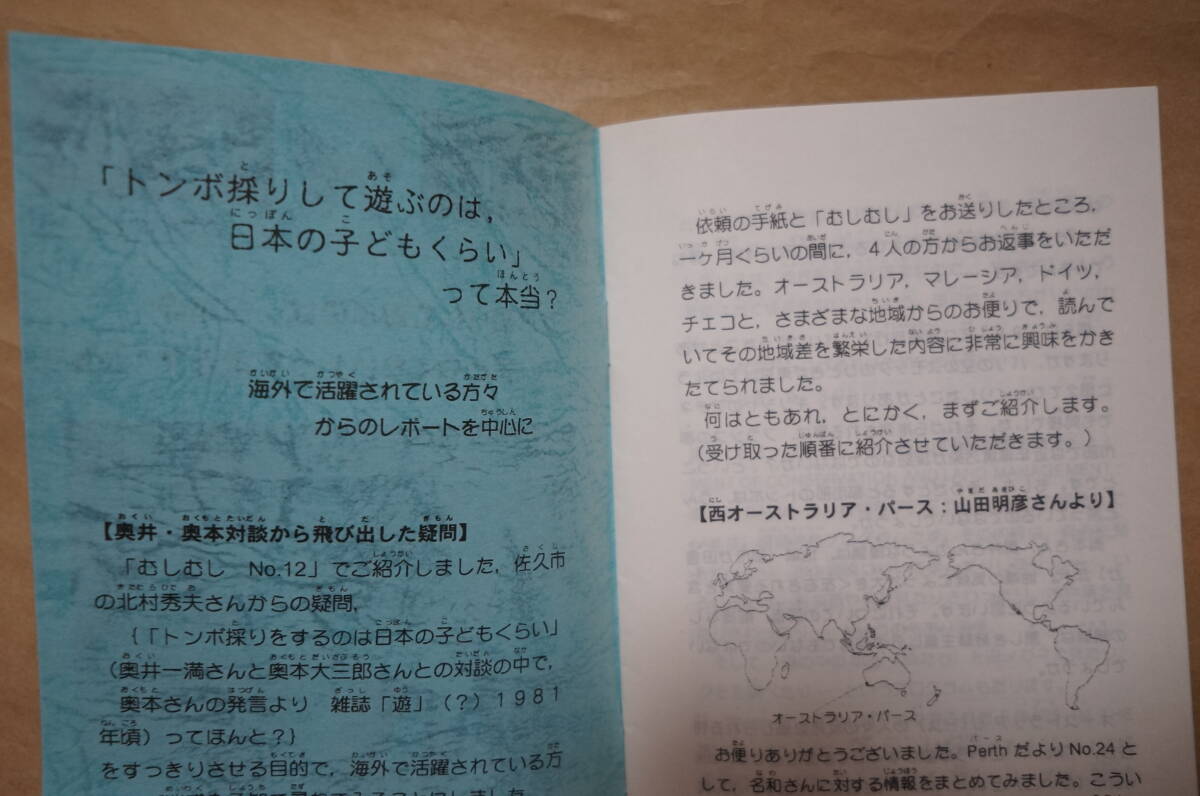 「トンボ採りして遊ぶのは，
日本の子どもくらい」
って本当？
海外で活躍されている方々
からのレポートを中心に
【奥井・奥本対談から飛び出した疑問】
「むしむし　No.12」でご紹介しました，佐久市
の北村秀夫さんからの疑問，
{「トンボ採りをするのは日本の子どもくらい」
（奥井一満さんと奥本大三郎さんとの対談の中で，
奥本さんの発言より　雑誌「遊」（？）１９８１
年頃）ってほんと？}
をすっきりさせる目的で，海外で活躍されている方
依頼の手紙と「むしむし」をお送りしたところ，
一ヶ月くらいの間に，４人の方からお返事をいただ
きました。オーストラリア，マレーシア，ドイツ，
チェコと，さまざまな地域からのお便りで，読んで
いてその地域差を繁栄した内容に非常に興味をかき
たてられました。
何はともあれ，とにかく，まずご紹介します。
（受け取った順番に紹介させていただきます。）
【西オーストラリア・パース：山田明彦さんより】
オーストラリア・パース
お便りありがとうございました。Perth だより No.24 と
して，名和さんに対する情報をまとめてみました。こうい